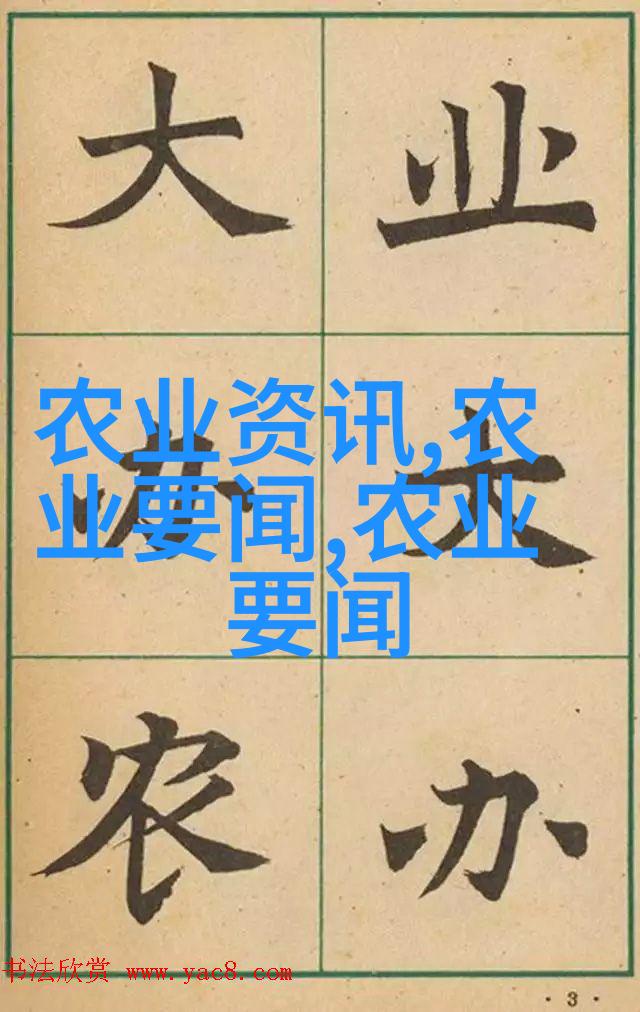 大办农
业大办
农业资讯,农
业要闻,农业
要闻
书法欣赏 www.yac8.com
·3·